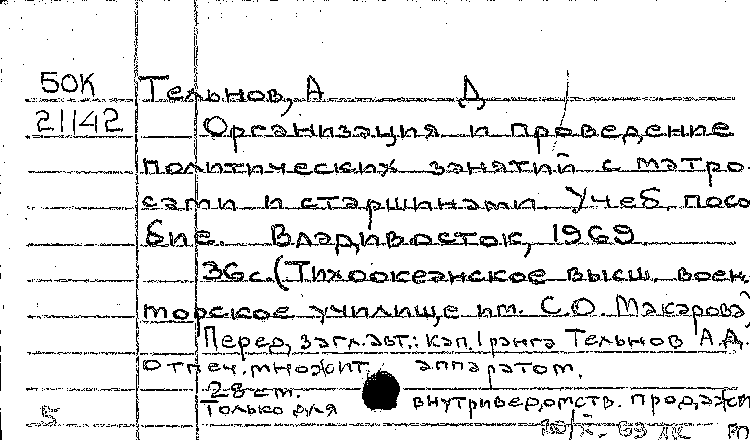 БОК Тельнов, А Д
21142 Организация и проведение
политических занятий с матро
сами и старшинами. Учеб. посо
бие. Владивосток, 1969.
36с. (Тихоокеанское высш. воен
морское училище им. С.О. Макарова)
Перед загл. авт.: кап. I ранга Тельнов А.Д.
Отпеч. множит. аппаратом.
28 см.
Только для внутриведомств. продажи
5